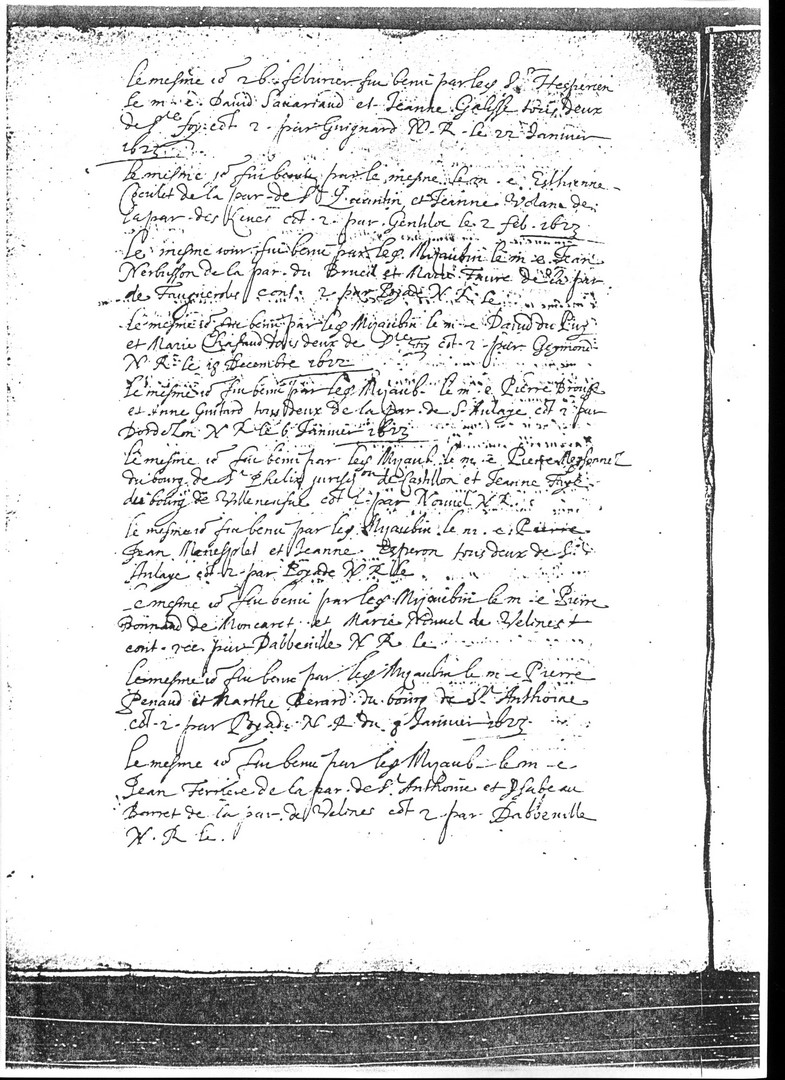 le mesme jo^r 26 febvrier fut beni par led S^r Hesperien
le m - e David Savariaud et Jeanne Gelisse tous deux
de S^te foy. cot 2 - par Guignard N. R - le 22 Janvier
1623
le mesme jo^r fut beni par le mesme le m - e Esthienne
Coculet de la par - de S^t Quantin et Jeanne Volane de
la par - des Leves cot - 2 - par Gentiloc le 2 feb - 1623
le mesme jour fut beni par led Mijaubin le m - e Jean
Nerbusson de la par - du Brueil et Marie Faure de la par
de Faugerolles cont. 2 par Pojade N. R le
le mesme jo^r fut beni par led Mijaubin le m - e David du Puy
et Marie Chafaud tous deux de S^te foy cot - 2 - par Geymond
N. R - le 18 Decembre 1622
le mesme jo^r fut beni par led Mijaub - le m - e Pierre
et Anne Guitard tous deux de la par de S^t Aulaye cot 2 par
Dordezon N R le 6 Janvier 1623
le mesme jo^r fut beni par led Mijaub - le m - e Pierre
du bourg de S^t Phelix jurisd^on de Castillon et Jeanne
du bourg de Villeneufve cot 2 - par Nouvel N R.
le mesme jo^r fut beni par led Mijaubin le m - e Pierre
Jean Menesplet et Jeanne Esperon tous deux de S^t
Aulaye cot - 2 - par Pojade N R le
le mesme jo^r fut beni par led Mijaubin le m - e Pierre
Bonnaud de Moncaret et Marie de Velines
cont - par Dabbeville N. R. le
le mesme jo^r fut beni par led Mijaubin le m - e Pierre
Penaud et Marthe Berard du bourg de S^t Anthoine
cot - 2 - par Pojade N. R du 8 Janvier 1623
le mesme jo^r fut beni par led Mijaub - le m - e -
Jean Ferriere de la par - de S^t Anthoine et Ysabeau
Borret de la par - de Velines cot 2 par Dabbeville
N. R le.